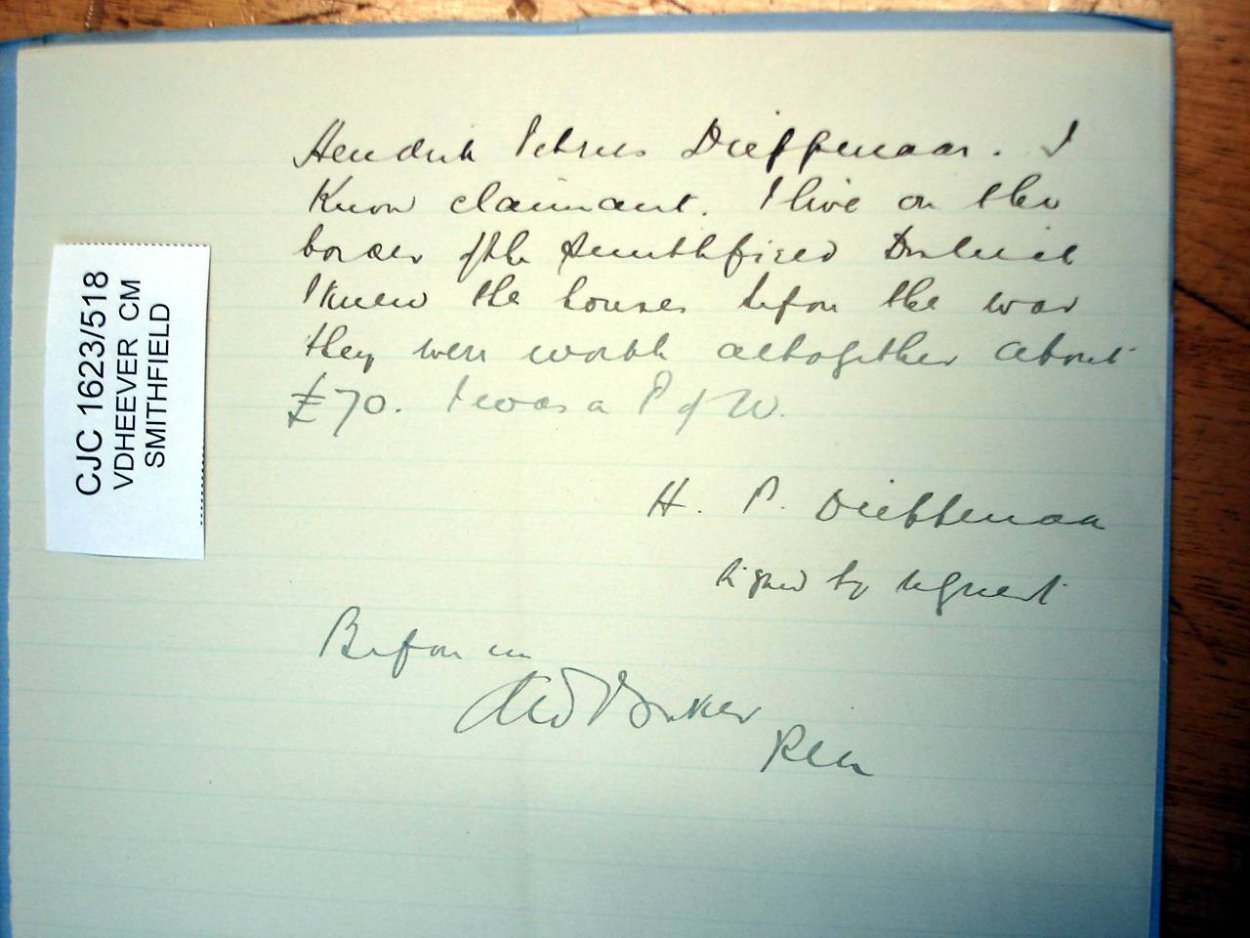 CJC 1623/518
VDHEEVER CM
SMITHFIELD
Hendrik Petrus Dieppenaar. I
Know claimant. I live on the
border of the Smithfield District
I knew the houses before the war
they were worth altogether about
£70. I was a P of W.
H. P. Dieppenaar
Signed by request
Before me